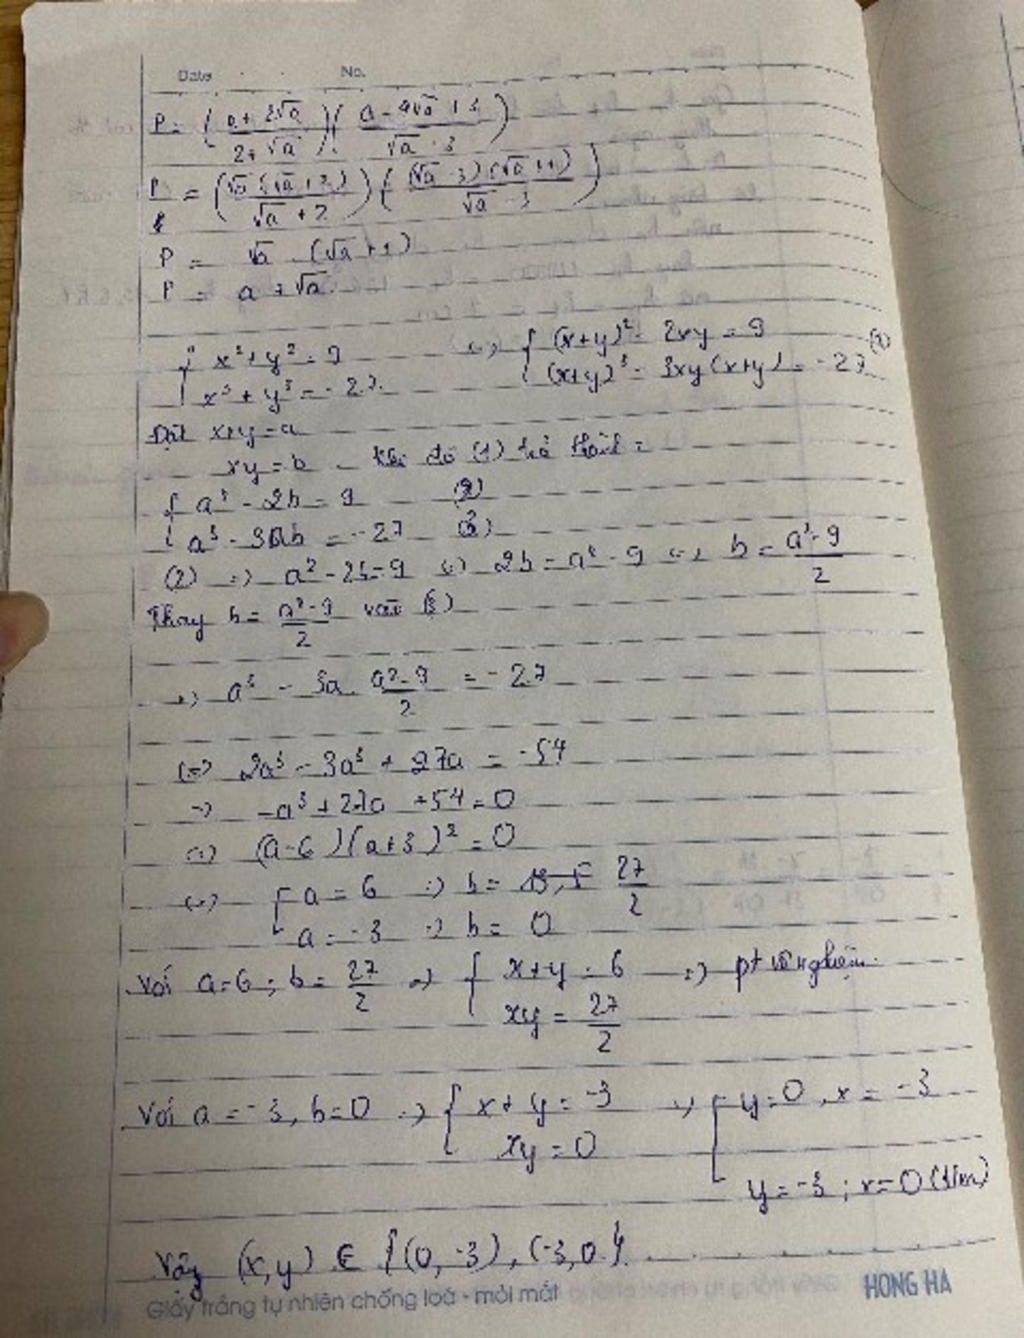 Date No.
P = (a + 2√a / 2 + √a)(a - 4√a + 3 / √a - 3)
P = (√a (√a + 2) / √a + 2)(( √a - 3)(√a + 1) / √a - 3)
P = √a . (√a + 1)
P = a + √a
{ x² + y² = 9 <=> { (x+y)² - 2xy = 9
x³ + y³ = -27 (x+y)³ - 3xy(x+y) = -27 (1)
Đặt x+y = a
xy = b khi đó (1) trở thành:
{ a² - 2b = 9 (2)
a³ - 3ab = -27 (3)
(2) => a² - 2b = 9 <=> 2b = a² - 9 <=> b = a² - 9 / 2
Thay b = a² - 9 / 2 vào (3)
=> a³ - 3a . a² - 9 / 2 = -27
<=> 2a³ - 3a³ + 27a = -54
=> -a³ + 27a + 54 = 0
<=> (a - 6)(a + 3)² = 0
<=> [ a = 6 => b = 27/2
a = -3 => b = 0
Với a = 6 ; b = 27/2 => { x + y = 6 => pt vô nghiệm
xy = 27/2
Với a = -3, b = 0 => { x + y = -3 => [ y = 0, x = -3
xy = 0
y = -3 ; x = 0 (t/m)
Vậy (x, y) ∈ {(0, -3), (-3, 0)}
Giấy trắng tự nhiên chống loá - mỏi mắt HONG HA